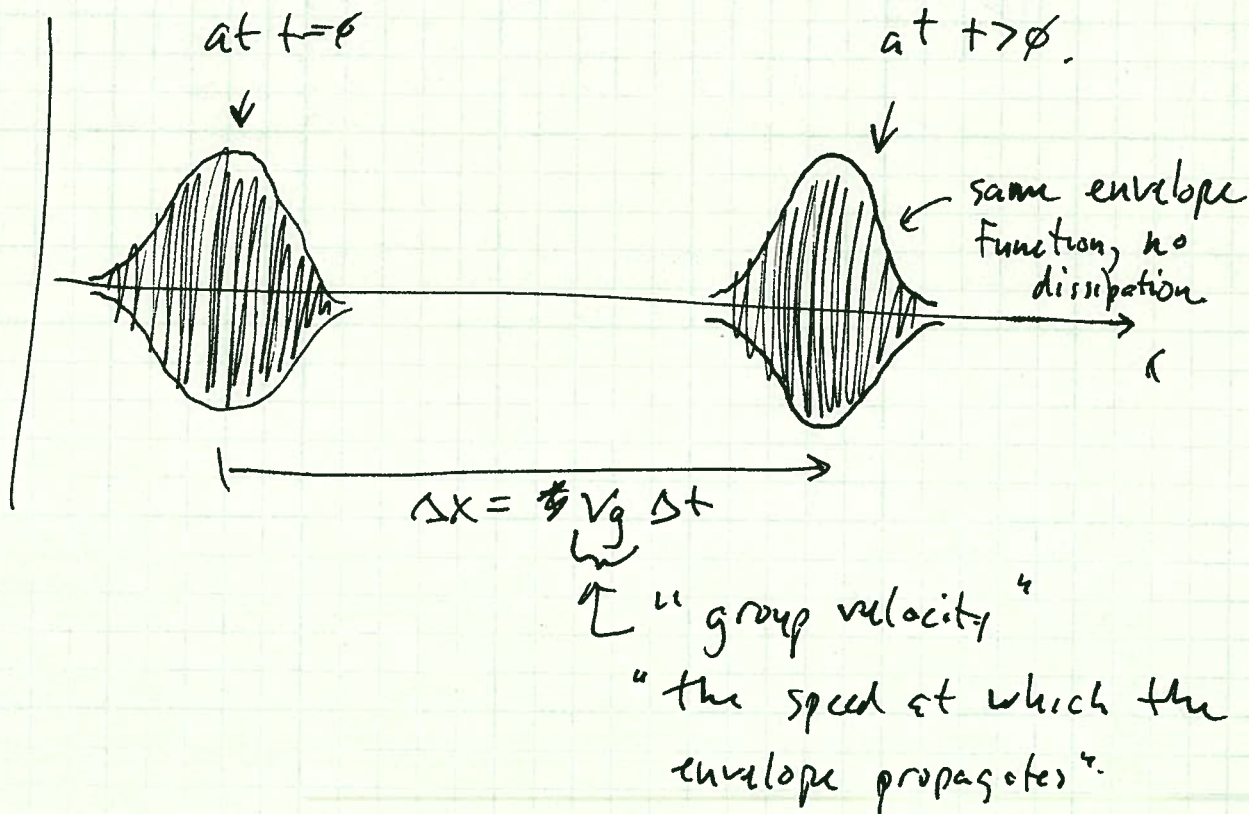 at t=ø
at t>ø.
same envelope
function, no
dissipation.
x
Δx = Vg Δt
"group velocity"
"the speed at which the
envelope propagates".